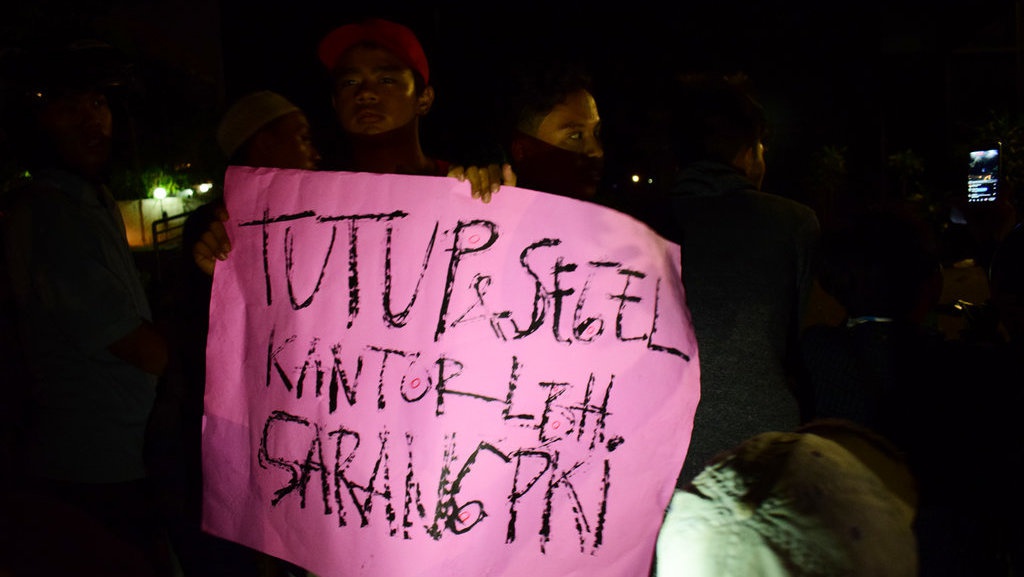 TUTUP & SEGEL
KANTOR LBH.
SARANG PKI